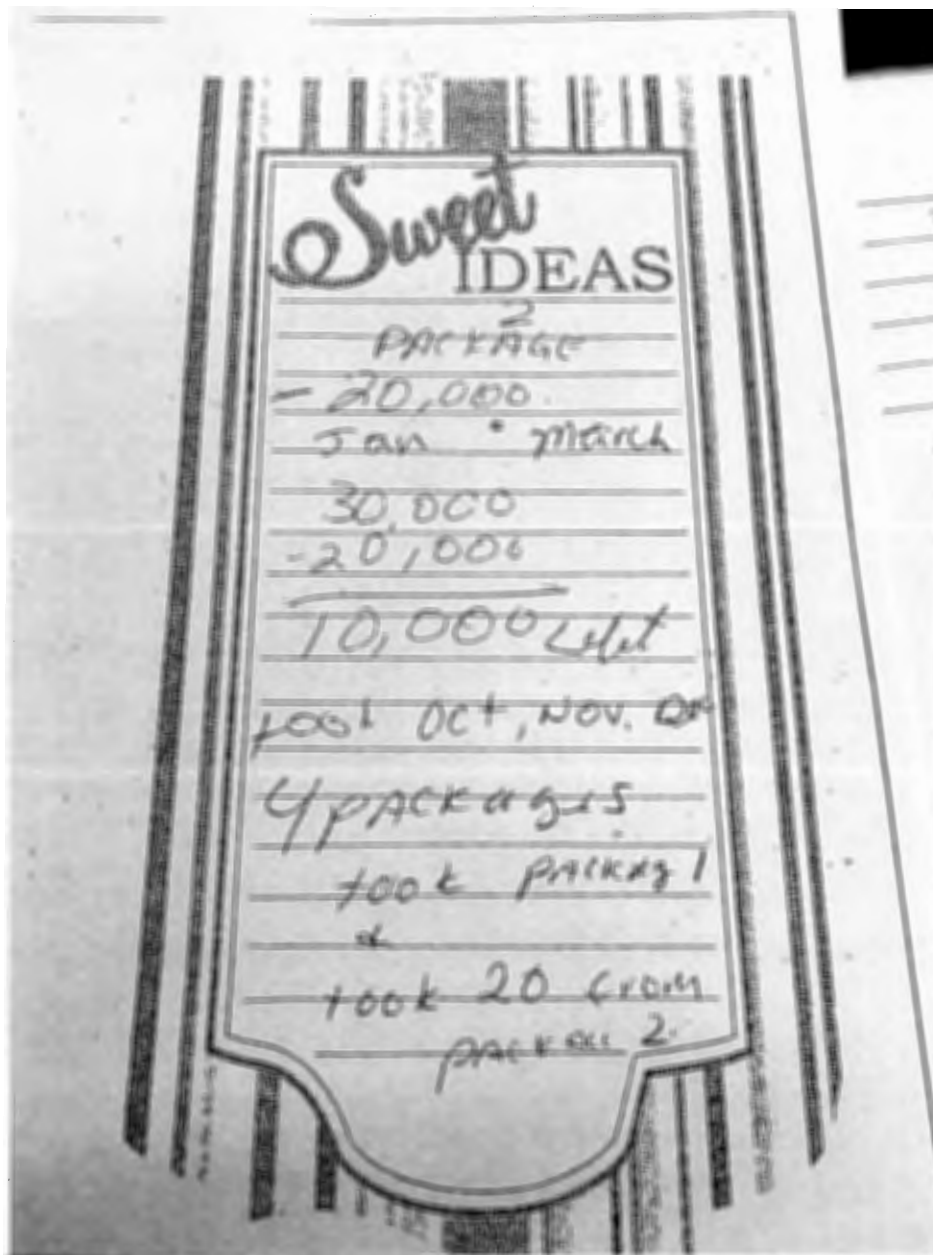 Sweet
IDEAS
2
PACKAGE
- 20,000.
Jan • March
30,000
-20,000
10,000 Left
took Oct, Nov.
4 PACKages
took PACKag 1
&
took 20 from
2.